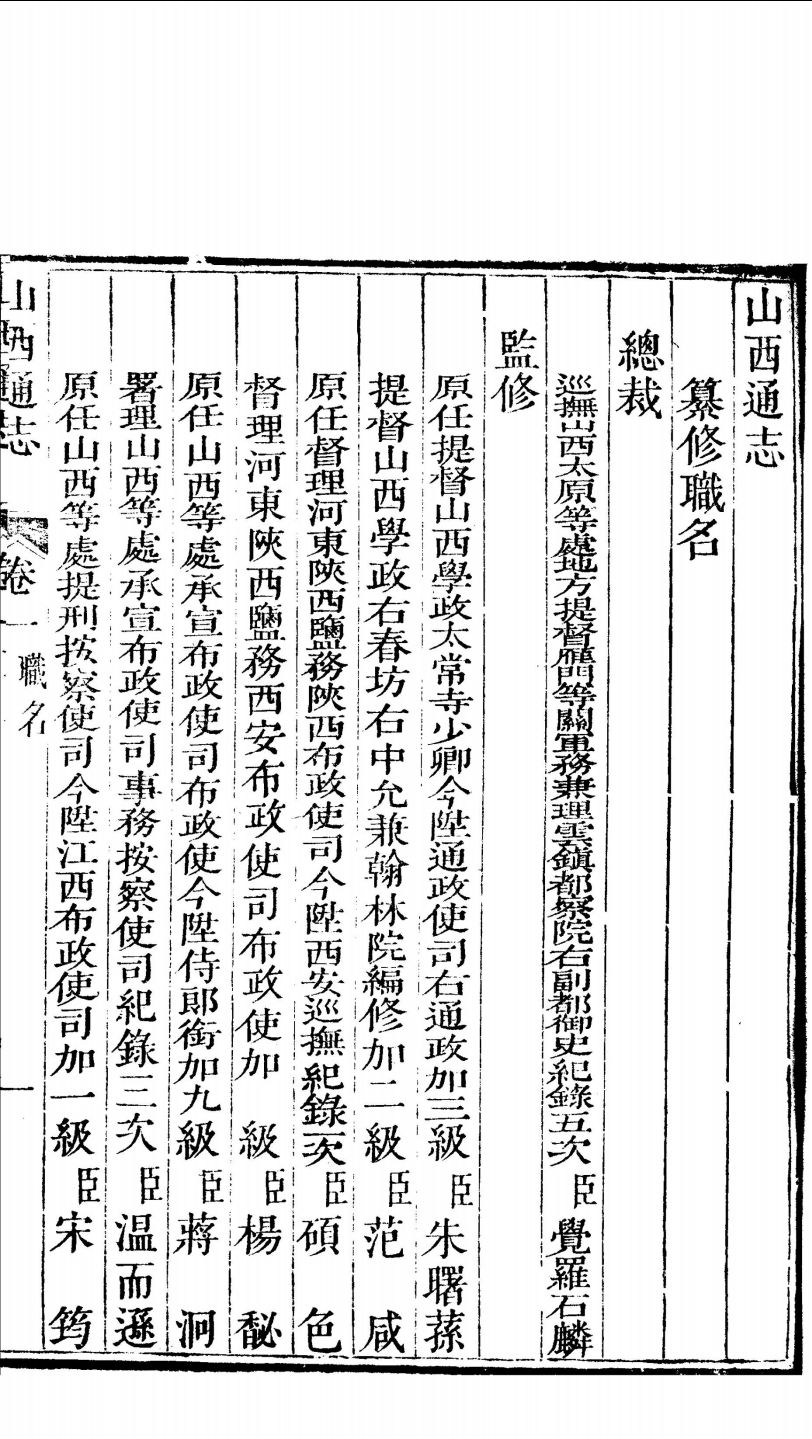 山西通志
纂修職名
總裁
巡撫山西太原等處地方提督雁門等關軍務兼理雲鎮都察院右副都御史紀錄五次臣覺羅石麟
監修
原任提督山西學政太常寺少卿今陞通政使司右通政加三級臣朱曙蓀
提督山西學政右春坊右中允兼翰林院編修加二級臣范咸
原任督理河東陝西鹽務陝西布政使司今陞西安巡撫紀錄一次臣碩色
督理河東陝西鹽務西安布政使司布政使加 級臣楊馝
原任山西等處承宣布政使司布政使今陞侍郎銜加九級臣蔣泂
署理山西等處承宣布政使司事務按察使司紀錄三次臣溫而遜
原任山西等處提刑按察使司今陞江西布政使司加一級臣宋筠
山西通志 卷一 職名 一